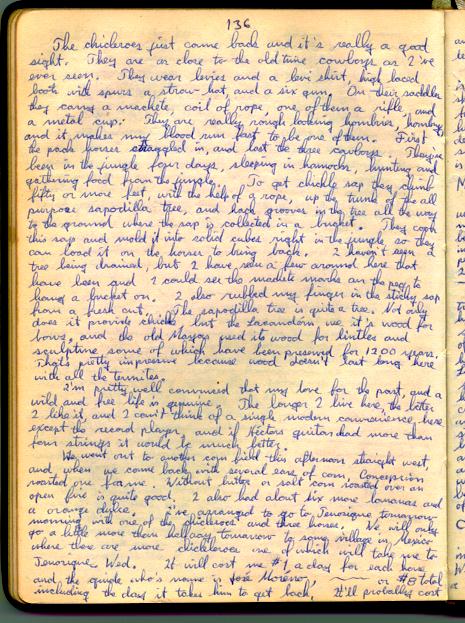 136
The chicleros just came back and it's really a good
sight. They are as close to the old time cowboys as I've
ever seen. They wear levies and a levi shirt, high laced
boots with spurs a straw hat, and a six gun. On their saddles
they carry a machete, coil of rope, one of them a rifle, and
a metal cup. They are really rough looking hombries,
and it makes my blood run fast to be one of them. First
the pack horses straggled in, and last the three cowboys. They've
been in the jungle four days, sleeping in hamocks, hunting and
gathering food from the jungle. To get chickle sap they climb
fifty or more feet, with the help of a rope, up the trunk of the all
purpose sapodilla tree, and hack grooves in the tree all the way
to the ground where the sap is collected in a bucket. They cook
this sap and mold it into solid cubes right in the jungle, so they
can load it on the horses to bring back. I haven't seen a
tree being drained, but I have seen a few around here that
have been and I could see the machete marks and the peg to
hang a bucket on. I also rubbed my finger in the sticky sap
from a fresh cut. The sapodilla tree is quite a tree. Not only
does it provide chickle, but the Lacandon use it's wood for
bows, and the old Mayas used its wood for lintles and
sculpture, some of which have been preserved for 1200 years.
That's pretty impressive because wood doesn't last long here
with all the termites.
I'm pretty well convinced that my love for the past, and a
wild and free life is genuine. The longer I live here, the better
I like it, and I can't think of a single modern convenience here
except the record player, and if Hectors guitar had more than
four strings it would be much better.
We went out to another corn field this afternoon straight west,
and when we came back with several ears of corn, Concepcion
roasted one for me. Without butter or salt corn roasted over an
open fire is quite good. I also had about six more bananas and
a orange dulce. I've arranged to go to Tenosique tomorrow
morning with one of the chicleros and three horses. We will only
go a little more than halfway tomorrow to some village in Mexico
where there are more chicleros one of which will take me to
Tenosique Wed. It will cost me #1 a day for each horse
and the guide who's name is José Moreno, or #8 total
including the day it takes him to get back. It'll probalbly cost